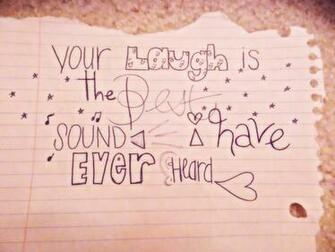 your Laugh is
the Best
SOUND I have
EVER Heard